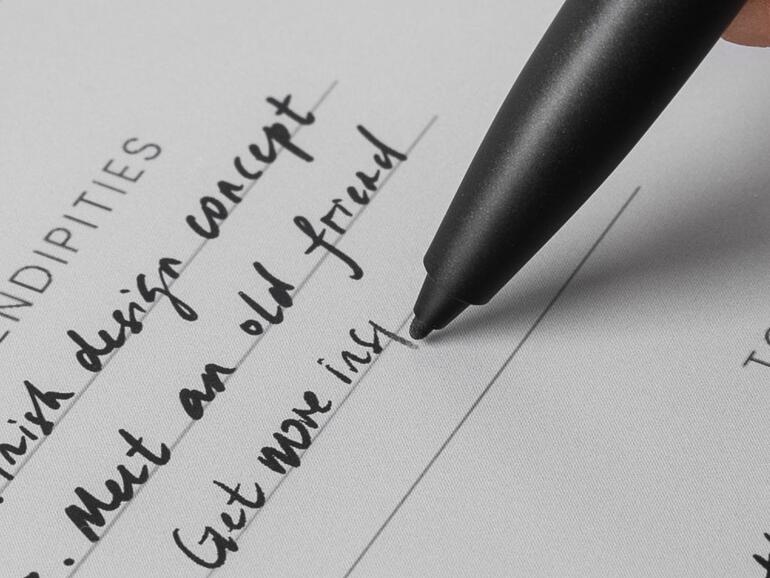 ENDIPITIES
nish design concept
. Meet an old friend
Get more ins